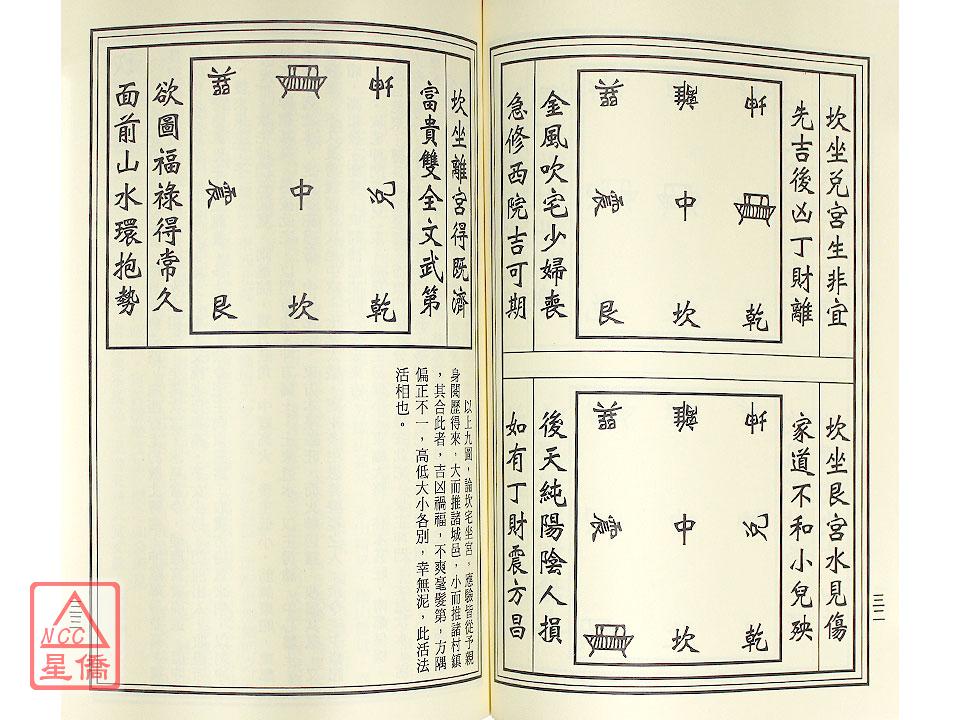 坎坐兌宮生非宜
先吉後凶丁財離
乾
兌
坤
坎
中
離
艮
震
巽
金風吹宅少婦喪
急修西院吉可期
坎坐艮宮水見傷
家道不和小兒殃
乾
兌
坤
坎
中
離
震
巽
後天純陽陰人損
如有丁財震方昌
三二
坎坐離宮得既濟
富貴雙全文武第
乾
兌
坤
坎
中
艮
震
巽
欲圖福祿得常久
面前山水環抱勢
以上九圖，論坎宅坐宮。應驗皆從予親
身閱歷得來，大而推諸城邑，小而推諸村鎮
，其合此者，吉凶禍福，不爽毫髮第，方隅
偏正不一，高低大小各別，幸無泥，此活法
活相也。
三三
NCC
星僑